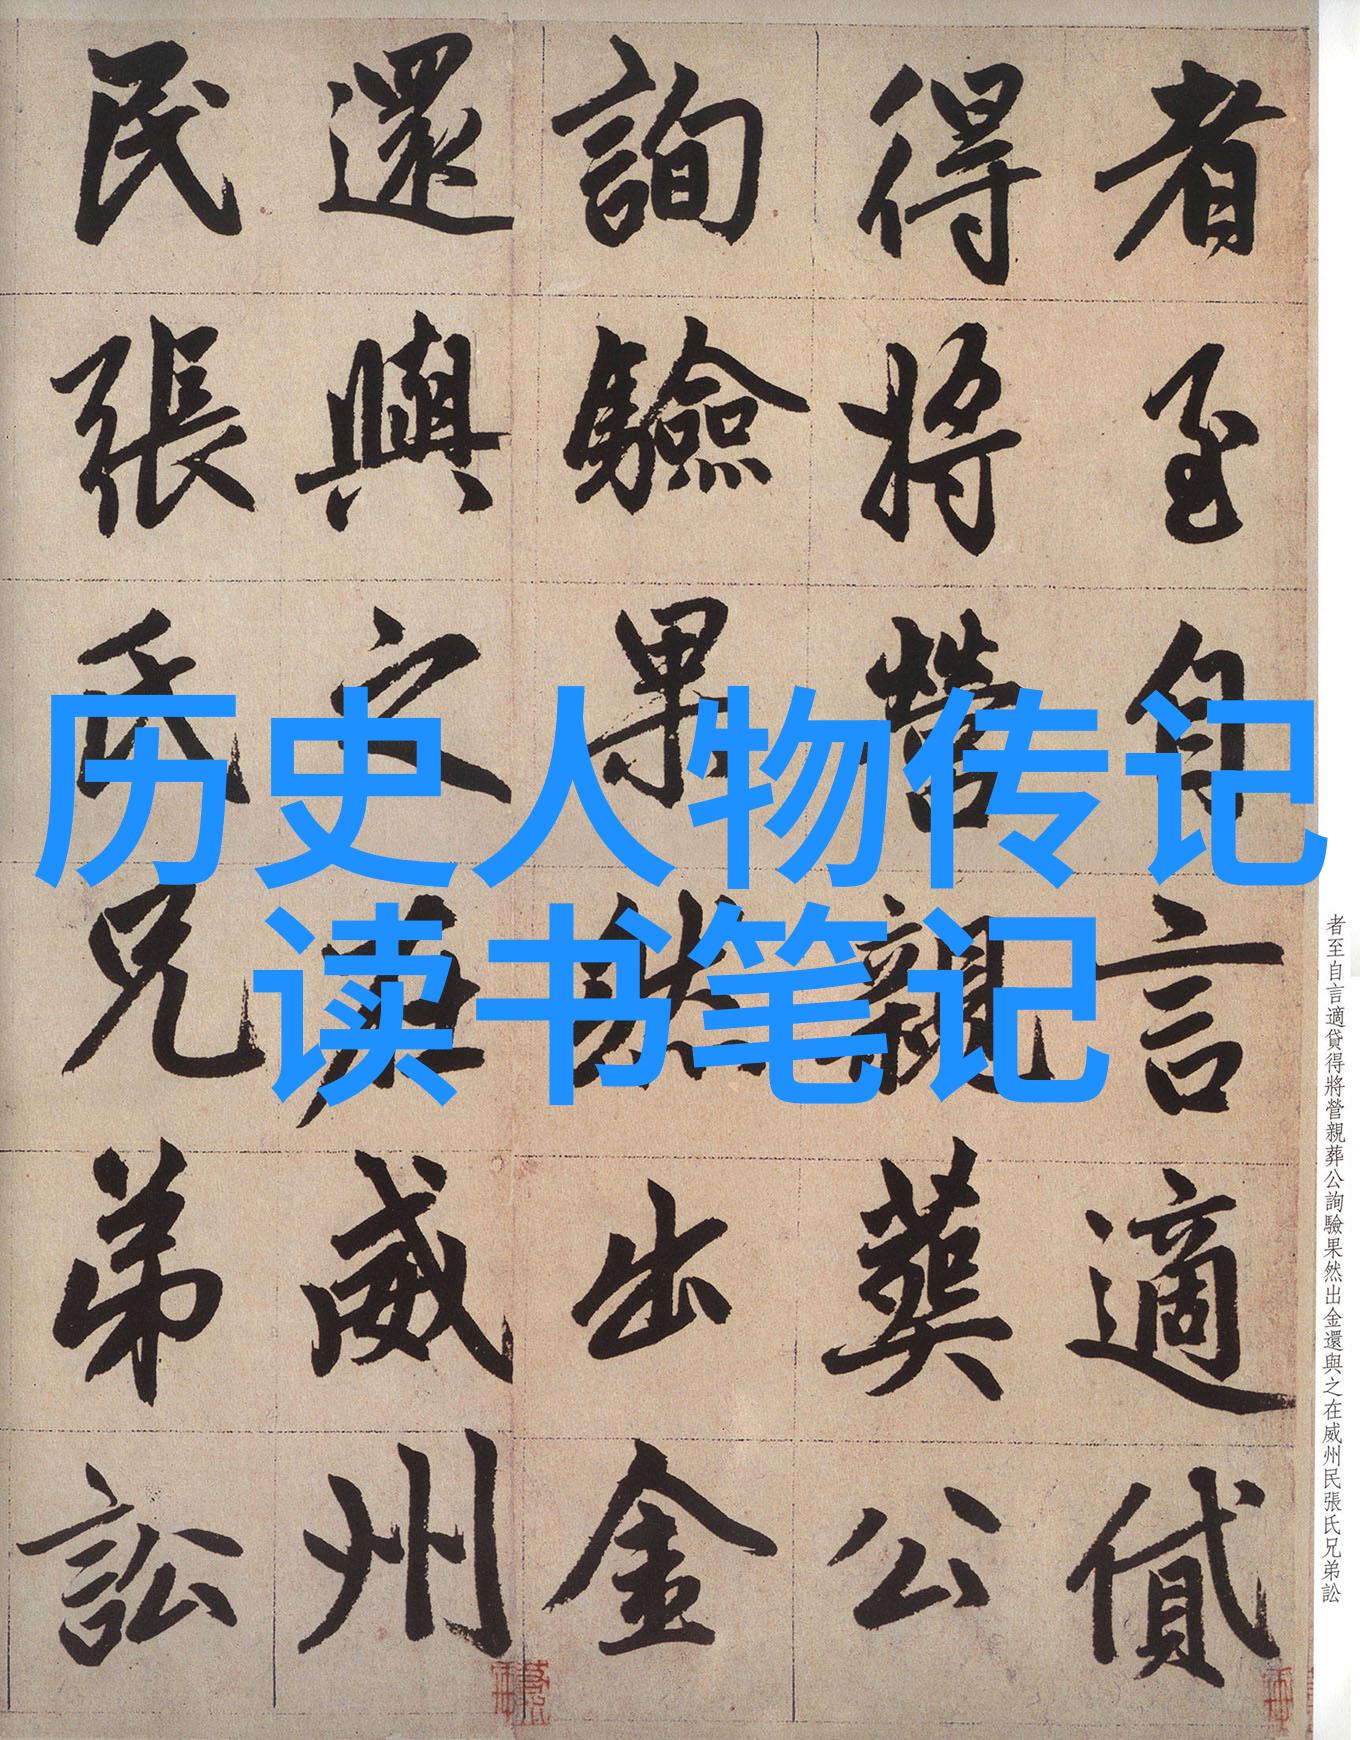 历史人物传记
读书笔记
者至自言適貸
得将營親葬公
詢驗果然出金
還與之在威州
民張氏兄弟訟
者至自言適貸得將營親葬公詢驗果然出金還與之在威州民張氏兄弟訟